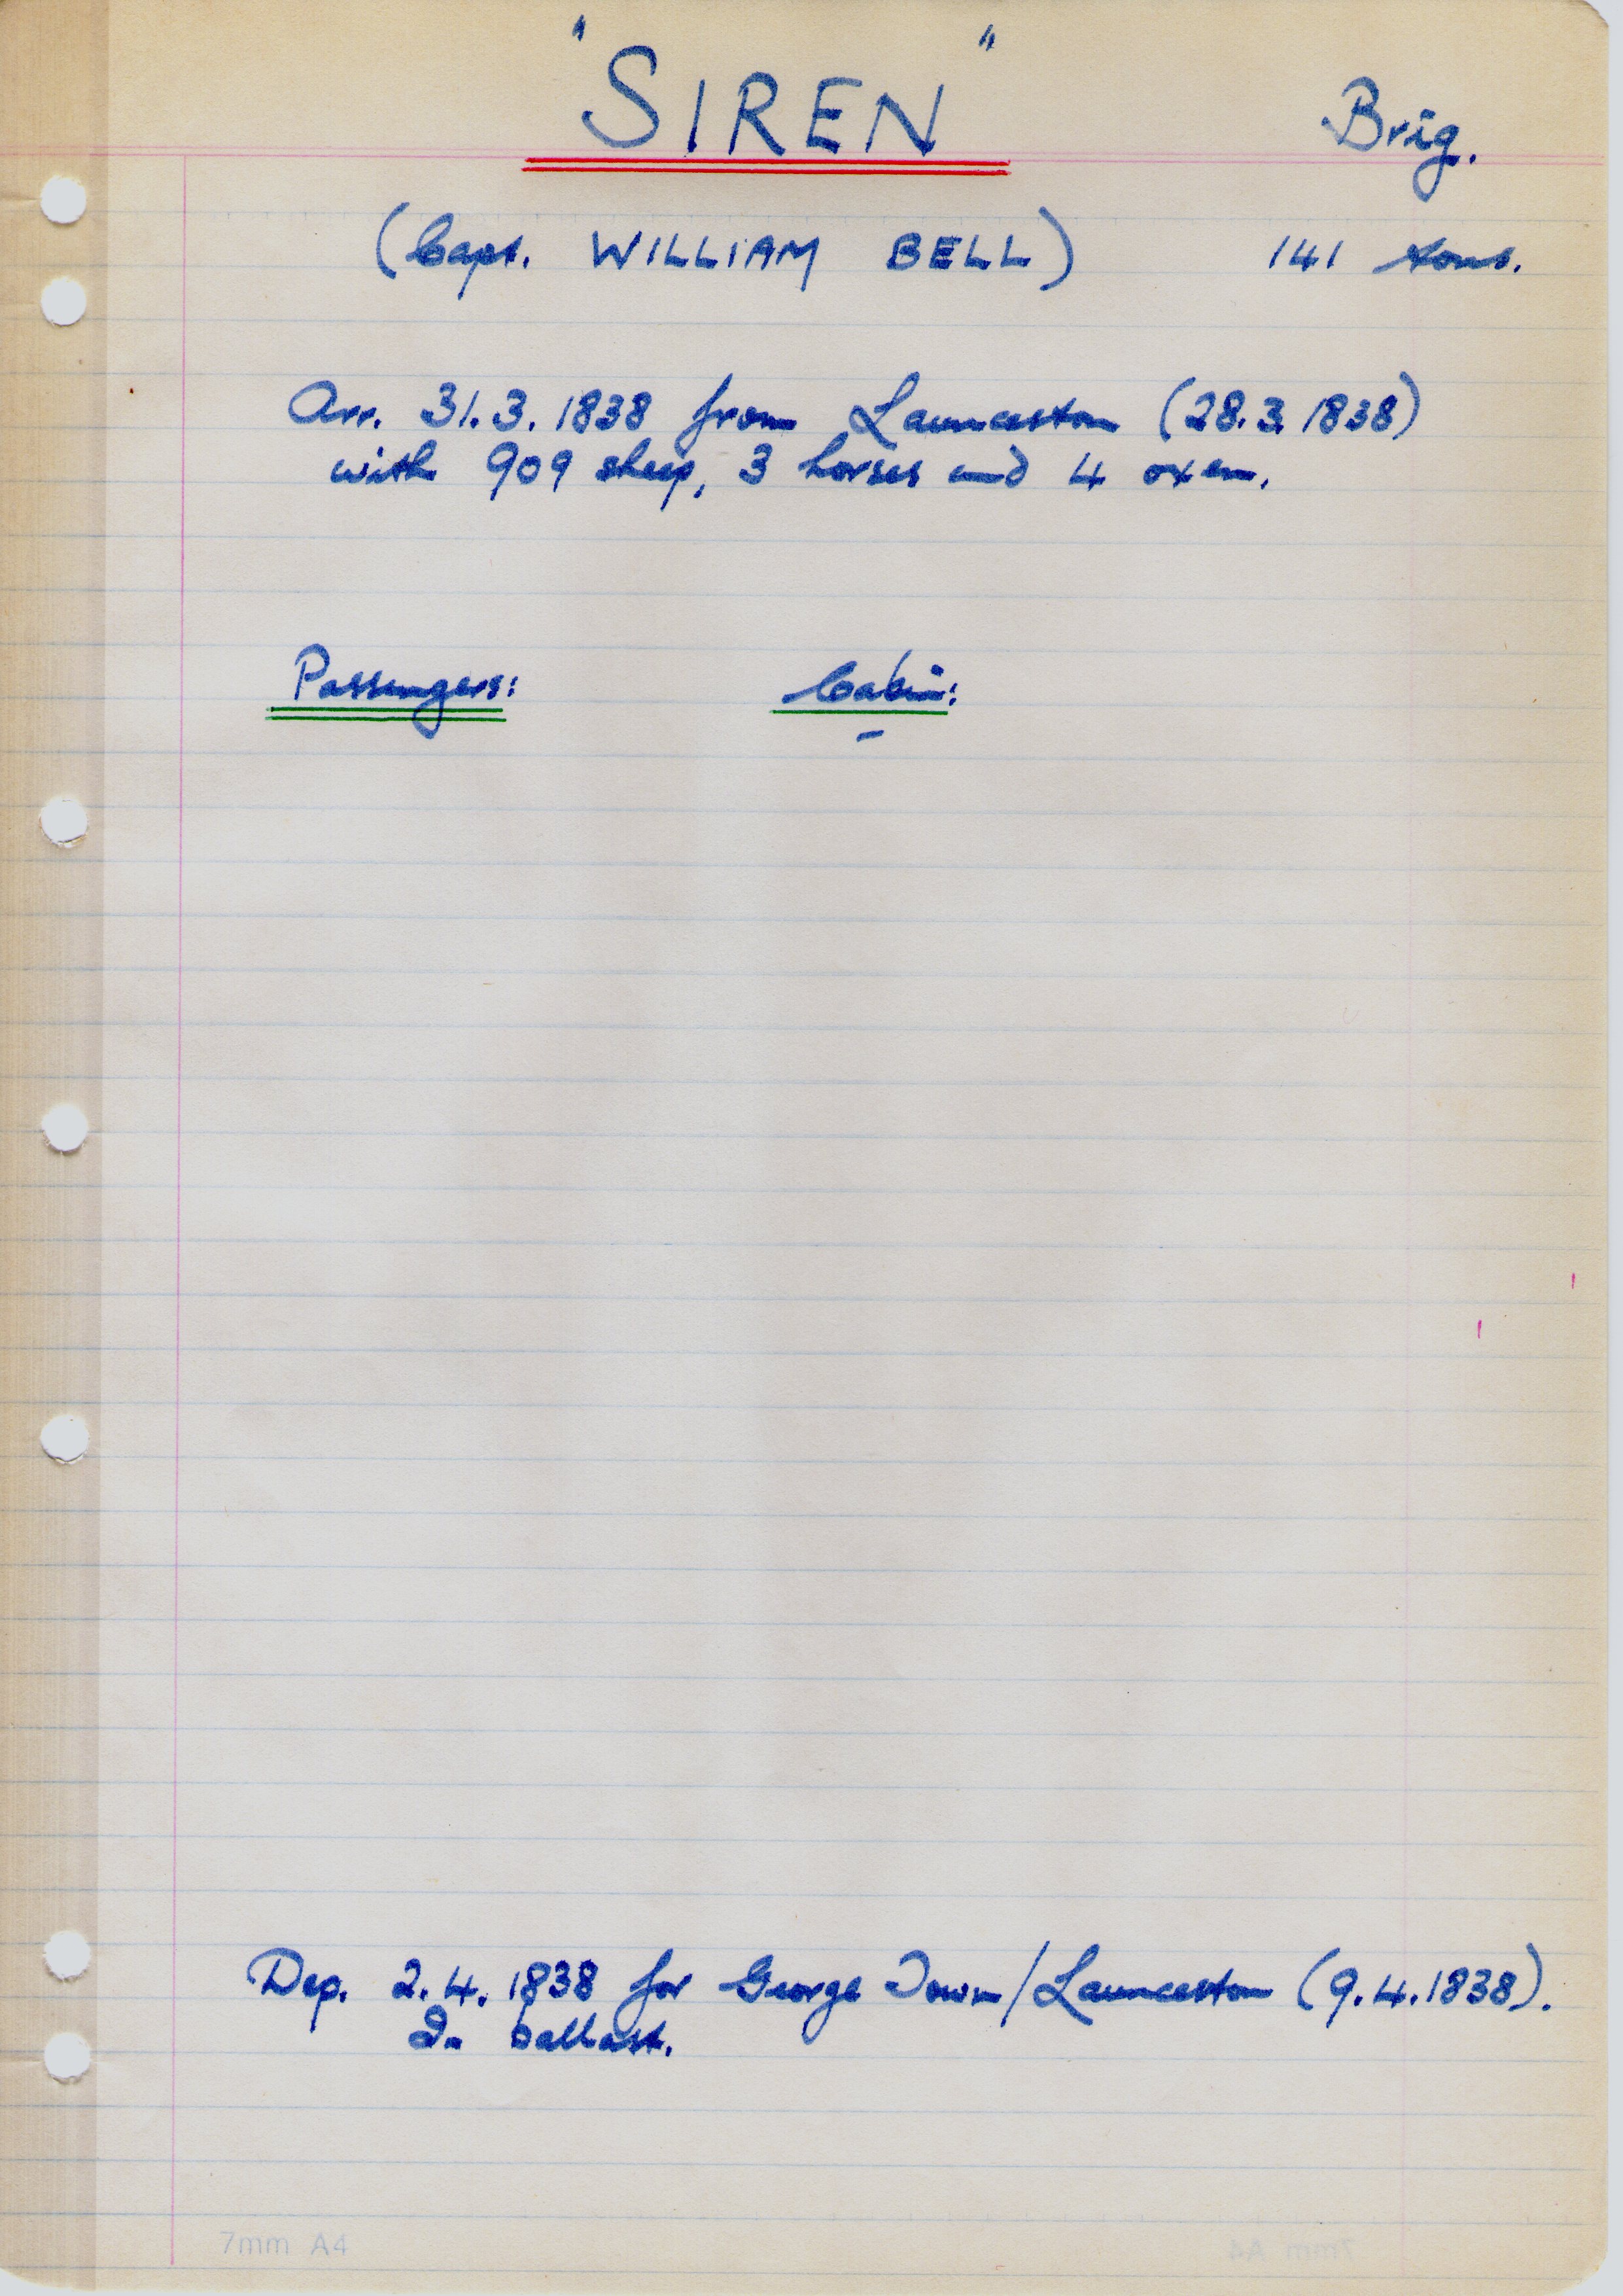 "SIREN" Brig.
(Capt. WILLIAM BELL) 141 tons.
Arr. 31.3.1838 from Launceston (28.3.1838)
with 909 sheep, 3 horses and 4 oxen.
Passengers: Cabin:
-
Dep. 2.4.1838 for George Town/Launceston (9.4.1838).
In ballast.
7mm A4